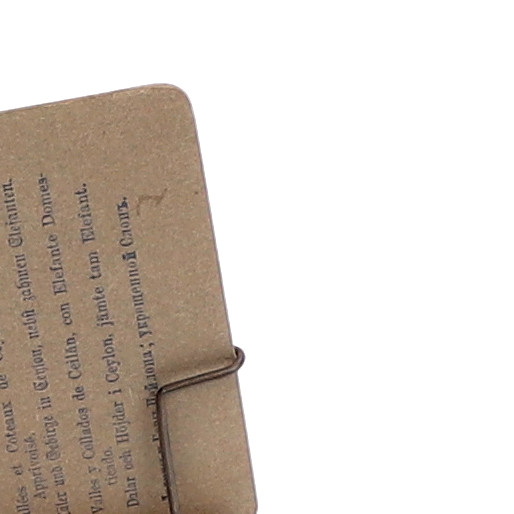 Coteaux de
Apprivoisé.
und Gebirge in Ceylon, nebst zahmen Elefanten.
Valles y Collados de Ceilán, con Elefante Domes-
ticado.
Dalar och Höjder i Ceylon, jämte tam Elefant.
Цейлона; укрощенной Слонъ.